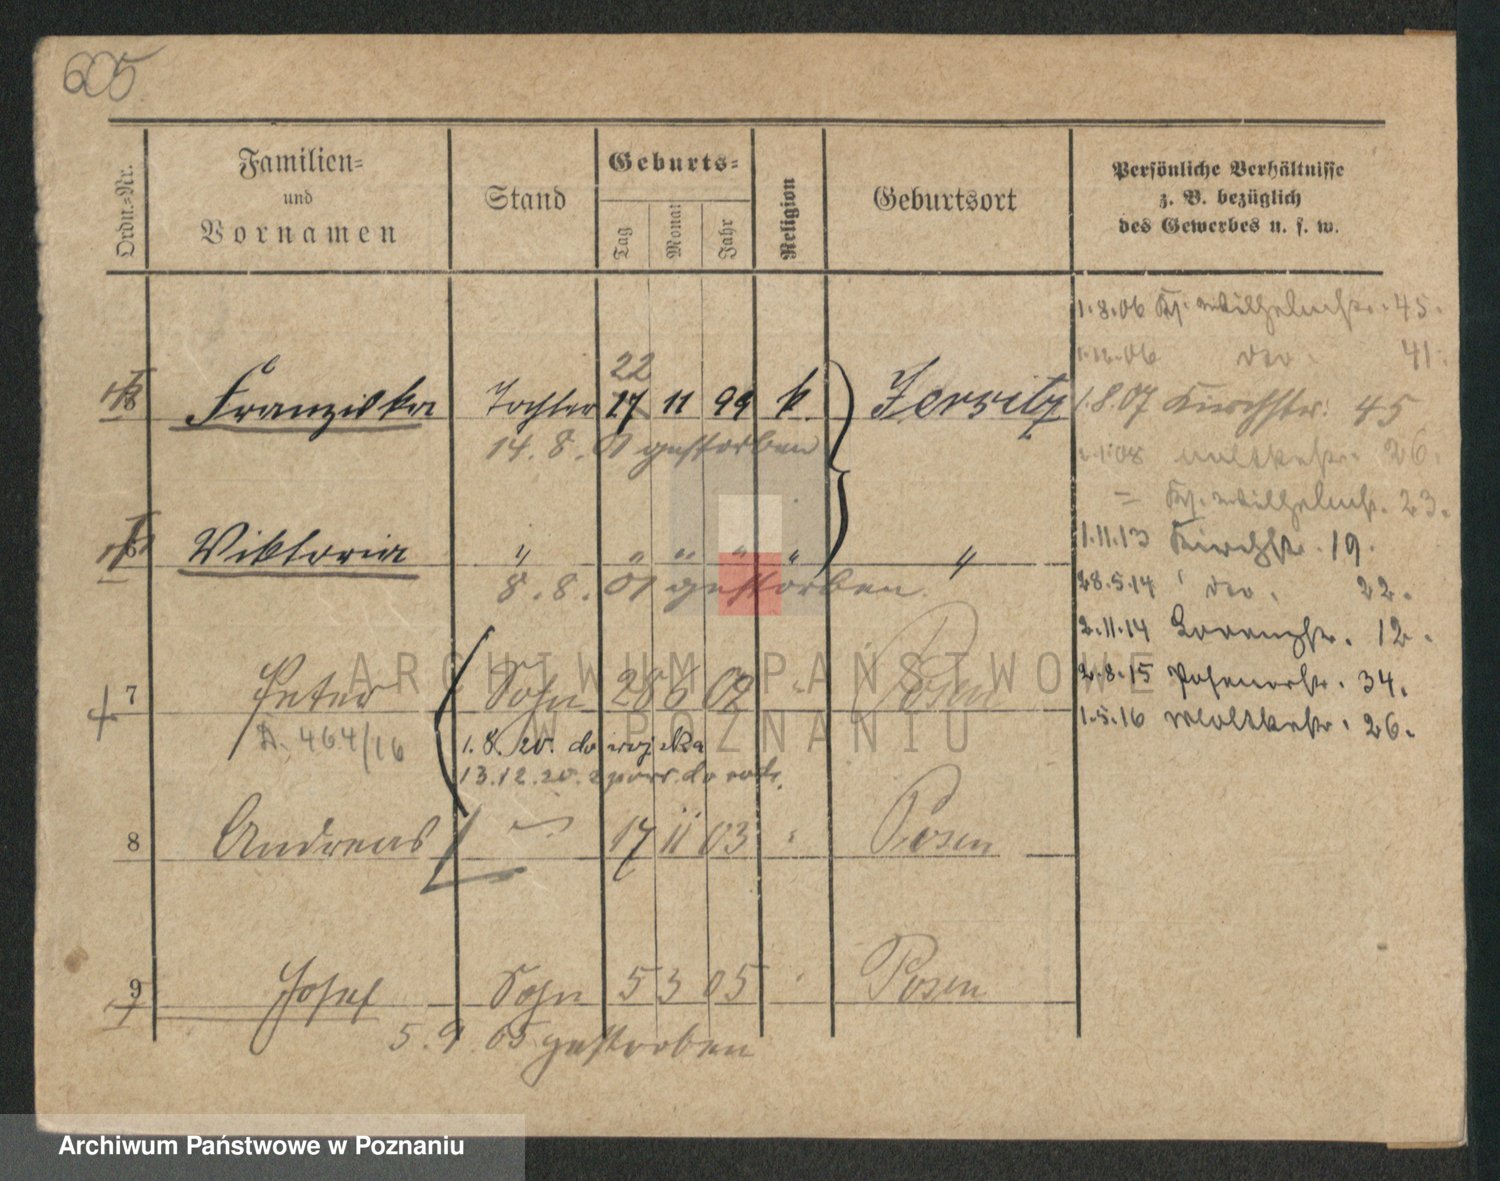 605
Ordn.-Nr.
Familien-
und
Vornamen
Stand
Geburts-
Tag
Monat
Jahr
Religion
Geburtsort
Persönliche Verhältnisse
z. B. bezüglich
des Gewerbes u. s. w.
1.8.06 Ks. Wilhelmstr. 45.
1.12.06 dto 41.
22
Franziska Tochter 17 11 99 k. Jersitz
1.8.07 Kirchstr. 45
14. 8. 01 gestorben
1.08 Moltkestr. 26.
= Ks. Wilhelmstr. 23.
1.11.13 Kirchstr. 19.
Viktoria " " " " " "
8. 8. 01 gestorben.
28.5.14 dto. 22.
2.11.14 12.
7 Peter Sohn 28 6 02 " Posen
2.8.15 Posenerstr. 34.
A. 464/16
1.8.20. do wojska
1.5.16 Moltkestr. 26.
13.12.20. do
8 Andreas 17 11 03 " Posen
9 Josef Sohn 5 3 05 " Posen
5. 9. 05 gestorben
ARCHIWUM PAŃSTWOWE
W POZNANIU
Archiwum Państwowe w Poznaniu